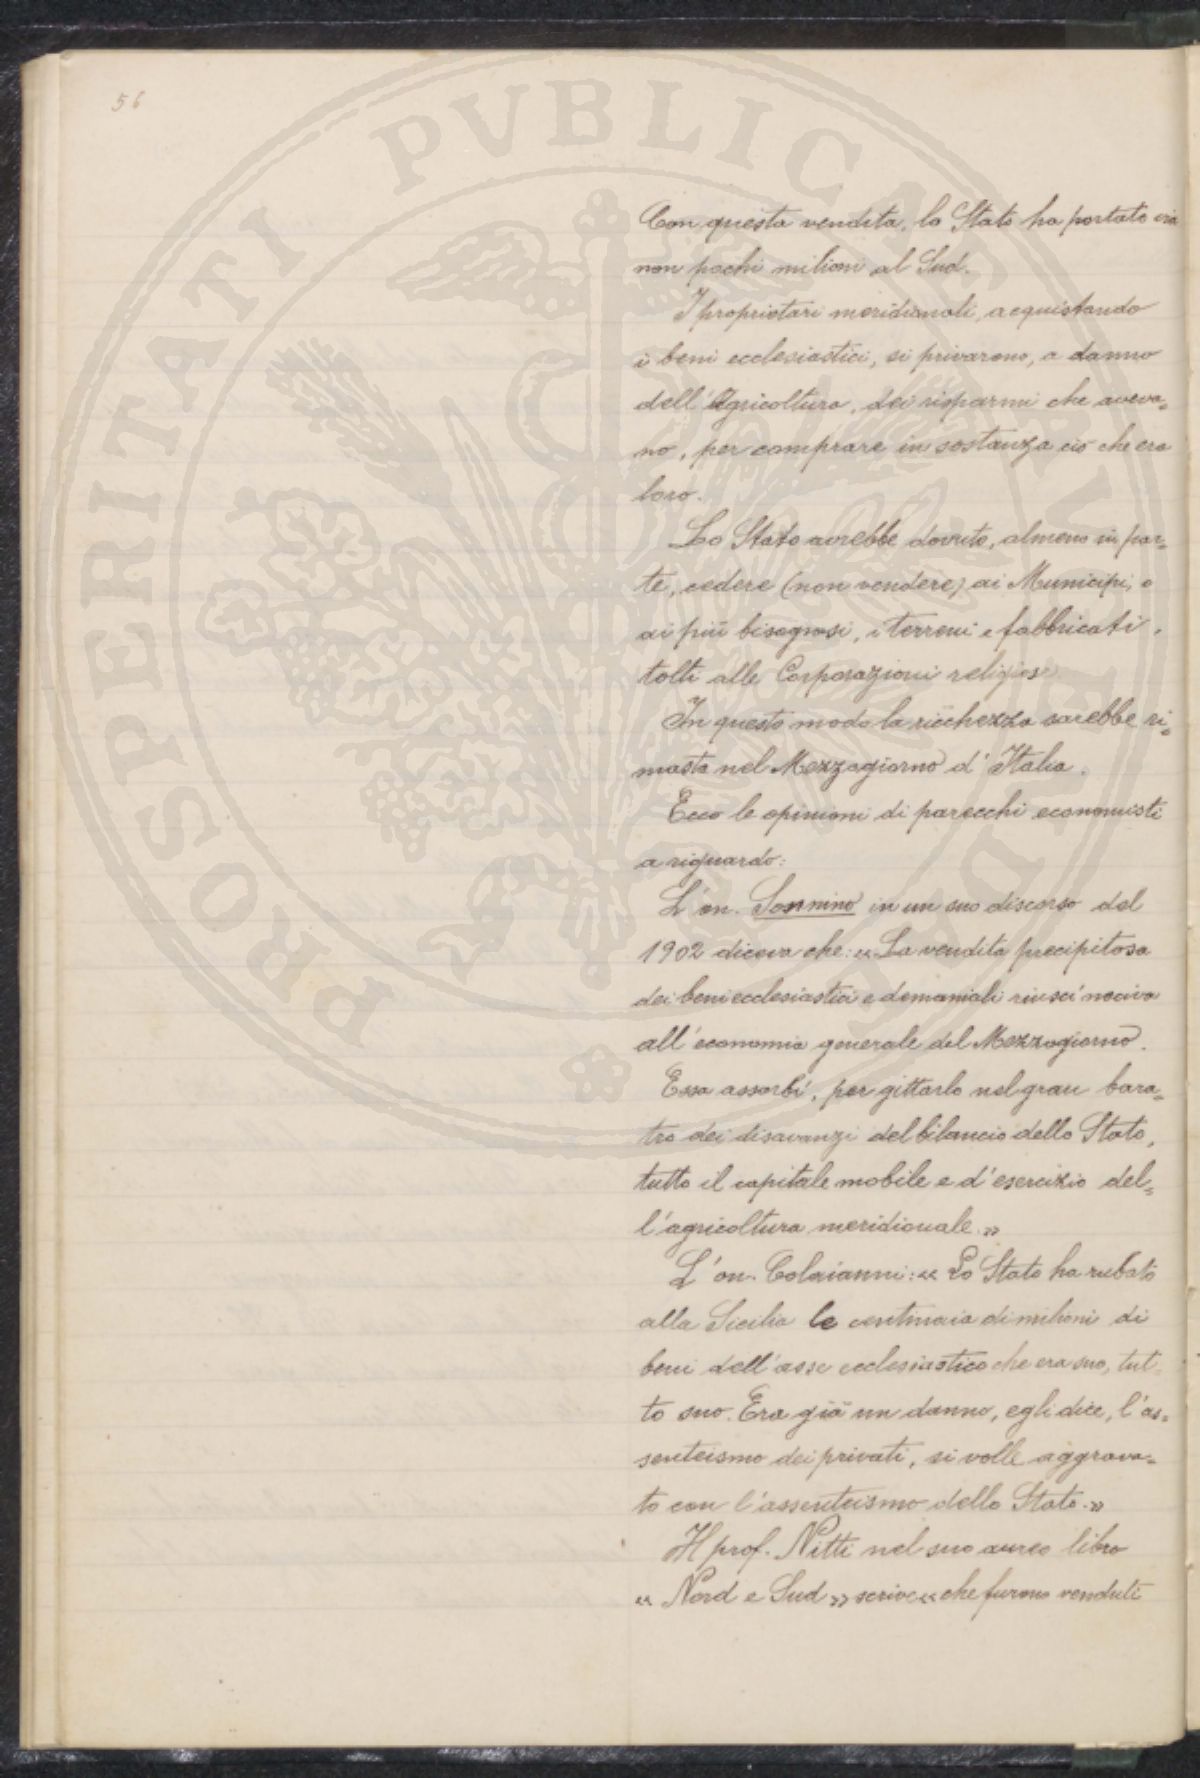 56
PROSPERITATI PVBLICAE AVGENDAE
Con questa vendita, lo Stato ha portato via
non pochi milioni al Sud.
I proprietari meridionali, acquistando
i beni ecclesiastici, si privarono, a danno
dell'Agricoltura, dei risparmi che aveva=
no, per comprare in sostanza ciò che era
loro.
Lo Stato avrebbe dovuto, almeno in par=
te, cedere (non vendere) ai Municipi, o
ai più bisognosi, i terreni e fabbricati,
tolti alle Corporazioni religiose.
In questo modo la ricchezza sarebbe ri=
masta nel Mezzogiorno d'Italia.
Ecco le opinioni di parecchi economisti
a riguardo:
L'on. Sonnino in un suo discorso del
1902 diceva che: «La vendita precipitosa
dei beni ecclesiastici e demaniali riuscì nociva
all'economia generale del Mezzogiorno.
Essa assorbì, per gittarlo nel gran bara=
tro dei disavanzi del bilancio dello Stato,
tutto il capitale mobile e d'esercizio del=
l'agricoltura meridionale.»
L'on. Colaianni: «Lo Stato ha rubato
alla Sicilia le centinaia di milioni di
beni dell'asse ecclesiastico che era suo, tut=
to suo. Era già un danno, egli dice, l'as=
senteismo dei privati, si volle aggrava=
to con l'assenteismo dello Stato.»
Il prof. Nitti nel suo aureo libro
«Nord e Sud» scrive «che furono venduti